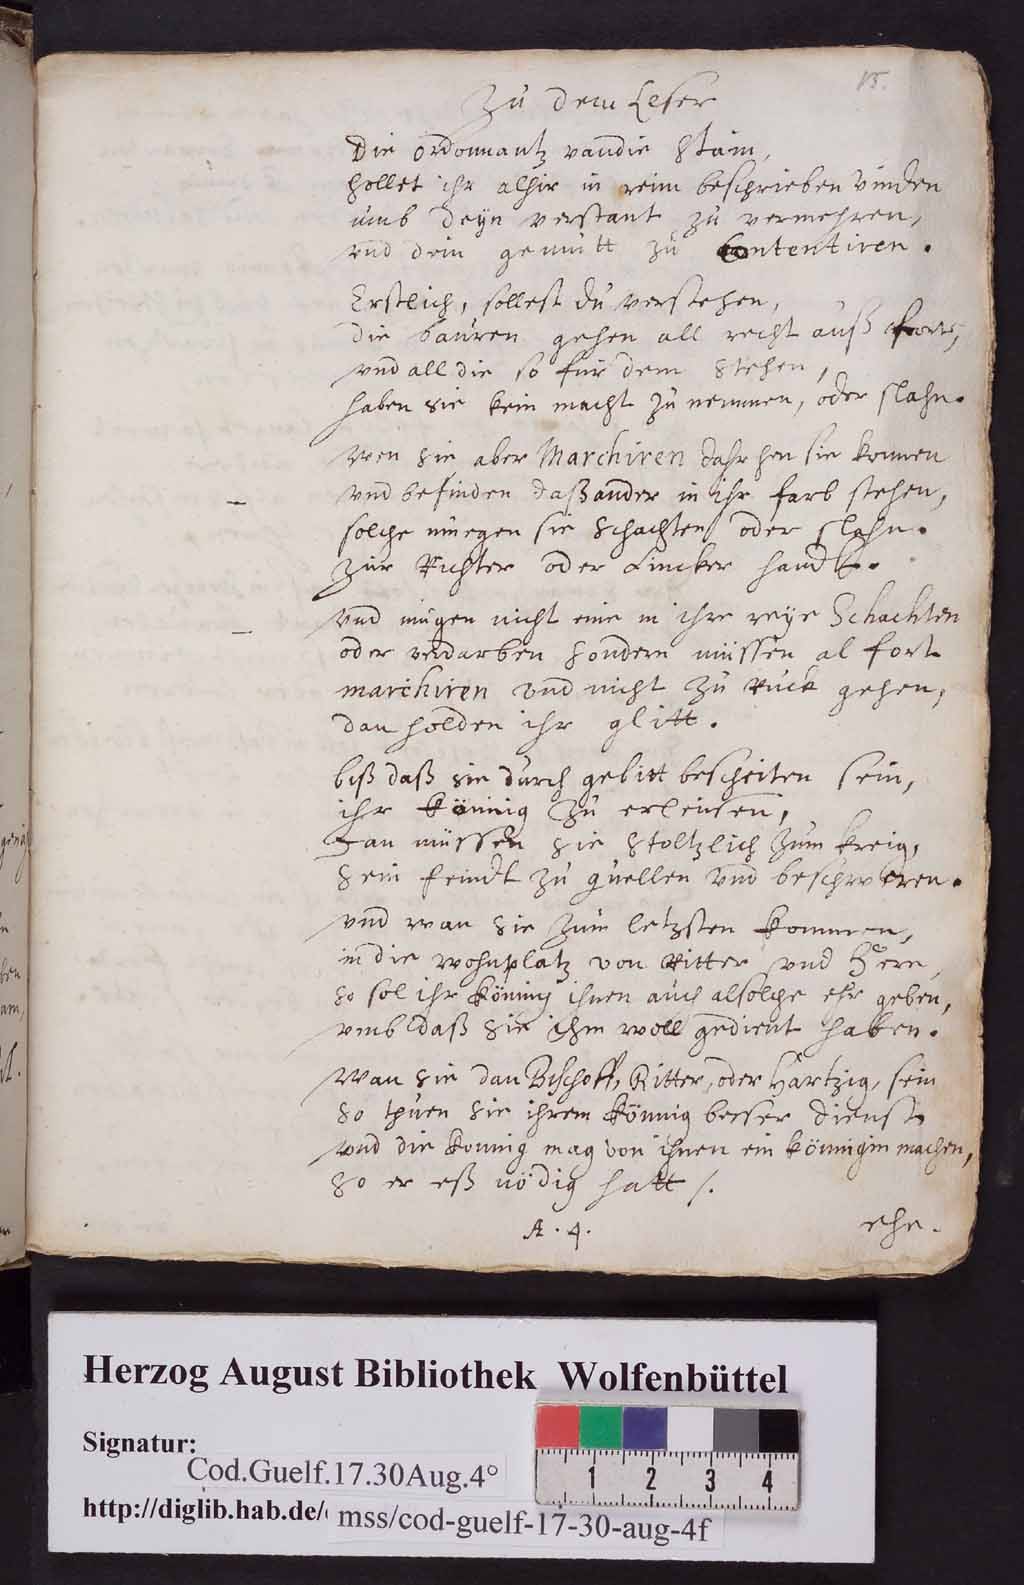 15.
Zu dem Leser
Die ordonnantz van die Stain,
sollet ihr alhir in reim beschrieben vinden
umb deyn verstant zu vermehren,
vnd dein gemutt zu Contentiren.
Erstlich, sollest du verstehen,
die bauren gehen all recht auß fort,
vnd all die so fur dem stehen,
haben sie kein macht zu nemmen, oder slahn.
Wen sie aber Marchiren dahr hen sie konnen
vnd befinden daß ander in ihr farb stehen,
solche muegen sie schachten oder slahn.
zur Richter oder Lincker handt.
vnd mugen nicht eine in ihre reye Schachten
oder verdarben sondern müssen al fort
marchiren vnd nicht zu Ruck gehen,
dan holden ihr glitt.
biß daß sie durch gebitt bescheiten sein,
ihr könnig zu
Dan müssen sie stoltzlich zum kreig,
sein feindt zu quellen vnd beschweren.
vnd wan sie zum letzsten kommen,
in die wohnplatz von Ritter vnd Here,
so sol ihr köning ihnen auch alsolche ehr geben,
vmb daß sie ihm woll gedient haben.
Wan sie dan Bischoff, Ritter, oder Hartzig, sein
so thuen sie ihrem könnig besser dienst
vnd die konnig mag von ihnen ein könnigin machen,
so er eß nödig hatt /.
A. 4.
ehe.
Herzog August Bibliothek Wolfenbüttel
Signatur:
Cod.Guelf.17.30Aug.4°
http://diglib.hab.de/ mss/cod-guelf-17-30-aug-4f
1 2 3 4